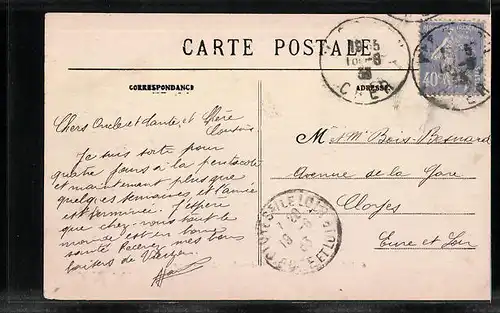 CARTE POSTALE
CORRESPONDANCE
ADRESSE
Chers Oncle et Tante, et Chère
Cousine
Je suis sortie pour
quatre jours à la pentecôte
et maintenant plus que
quelques semaines et l'année
est terminée. J'espère
que chez-vous tout le
monde est en bonne
santé Recevez mes bons
baisers de Vierzon
M et Mme Bois-Besnard
Avenue de la Gare
Cloyes
Eure et Loir
40
CHER
CLOYES-SUR-LE-LOIR
EURE-ET-LOIR